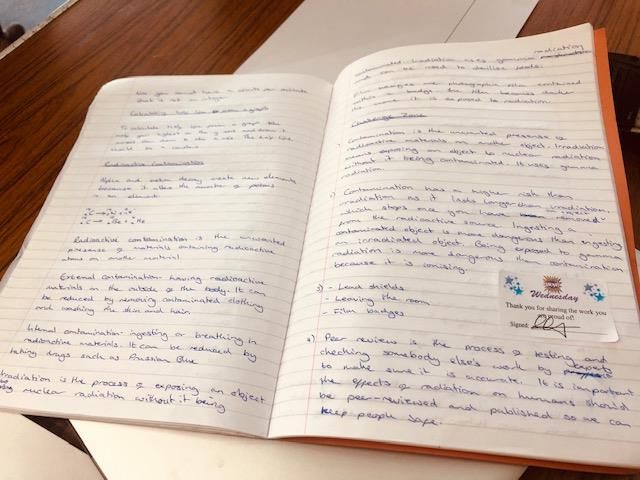 Now you cannot have a counts per minute
that is not an integer.
Calculating half life from a graph
To calculate half life from a graph take
Radioactive Contamination
Alpha and beta decay create new elements
because it alters the number of protons
in an element.
Radioactive contamination is the unwanted
presence of materials containing radioactive
atoms on another material.
External contamination- having radioactive
materials on the outside of the body. It can
be reduced by removing contaminated clothing
and washing the skin and hair.
Internal contamination- ingesting or breathing in
radioactive materials. It can be reduced by
taking drugs such as Prussian Blue
Irradiation is the process of exposing an object
by nuclear radiation without it being
contaminated. Irradiation uses gamma radiation
and can be used to sterilise
Film badges are photographic film contained
within a badge. The film becomes darker
the more it is exposed to radiation.
Challenge Zone
Contamination is the unwanted presence of
radioactive materials on another object. Irradiation
means exposing an object to nuclear radiation
without it being contaminated. It uses gamma
radiation.
Contamination has a higher risk than
irradiation as it lasts longer than irradiation
which stops once you have removed
from the radioactive source. Ingesting a
contaminated object is more dangerous than ingesting
an irradiated object. Being exposed to gamma
radiation is more dangerous than contamination
because it is ionising.
3) - Lead shields
- Leaving the room
- Film badges
WOW!
Wednesday
Thank you for sharing the work you
proud of!
Signed:
4) Peer review is the process of testing and
checking somebody else's work by experts
to make sure it is accurate. It is important
the effects of radiation on humans should
be peer-reviewed and published so we can
keep people safe.